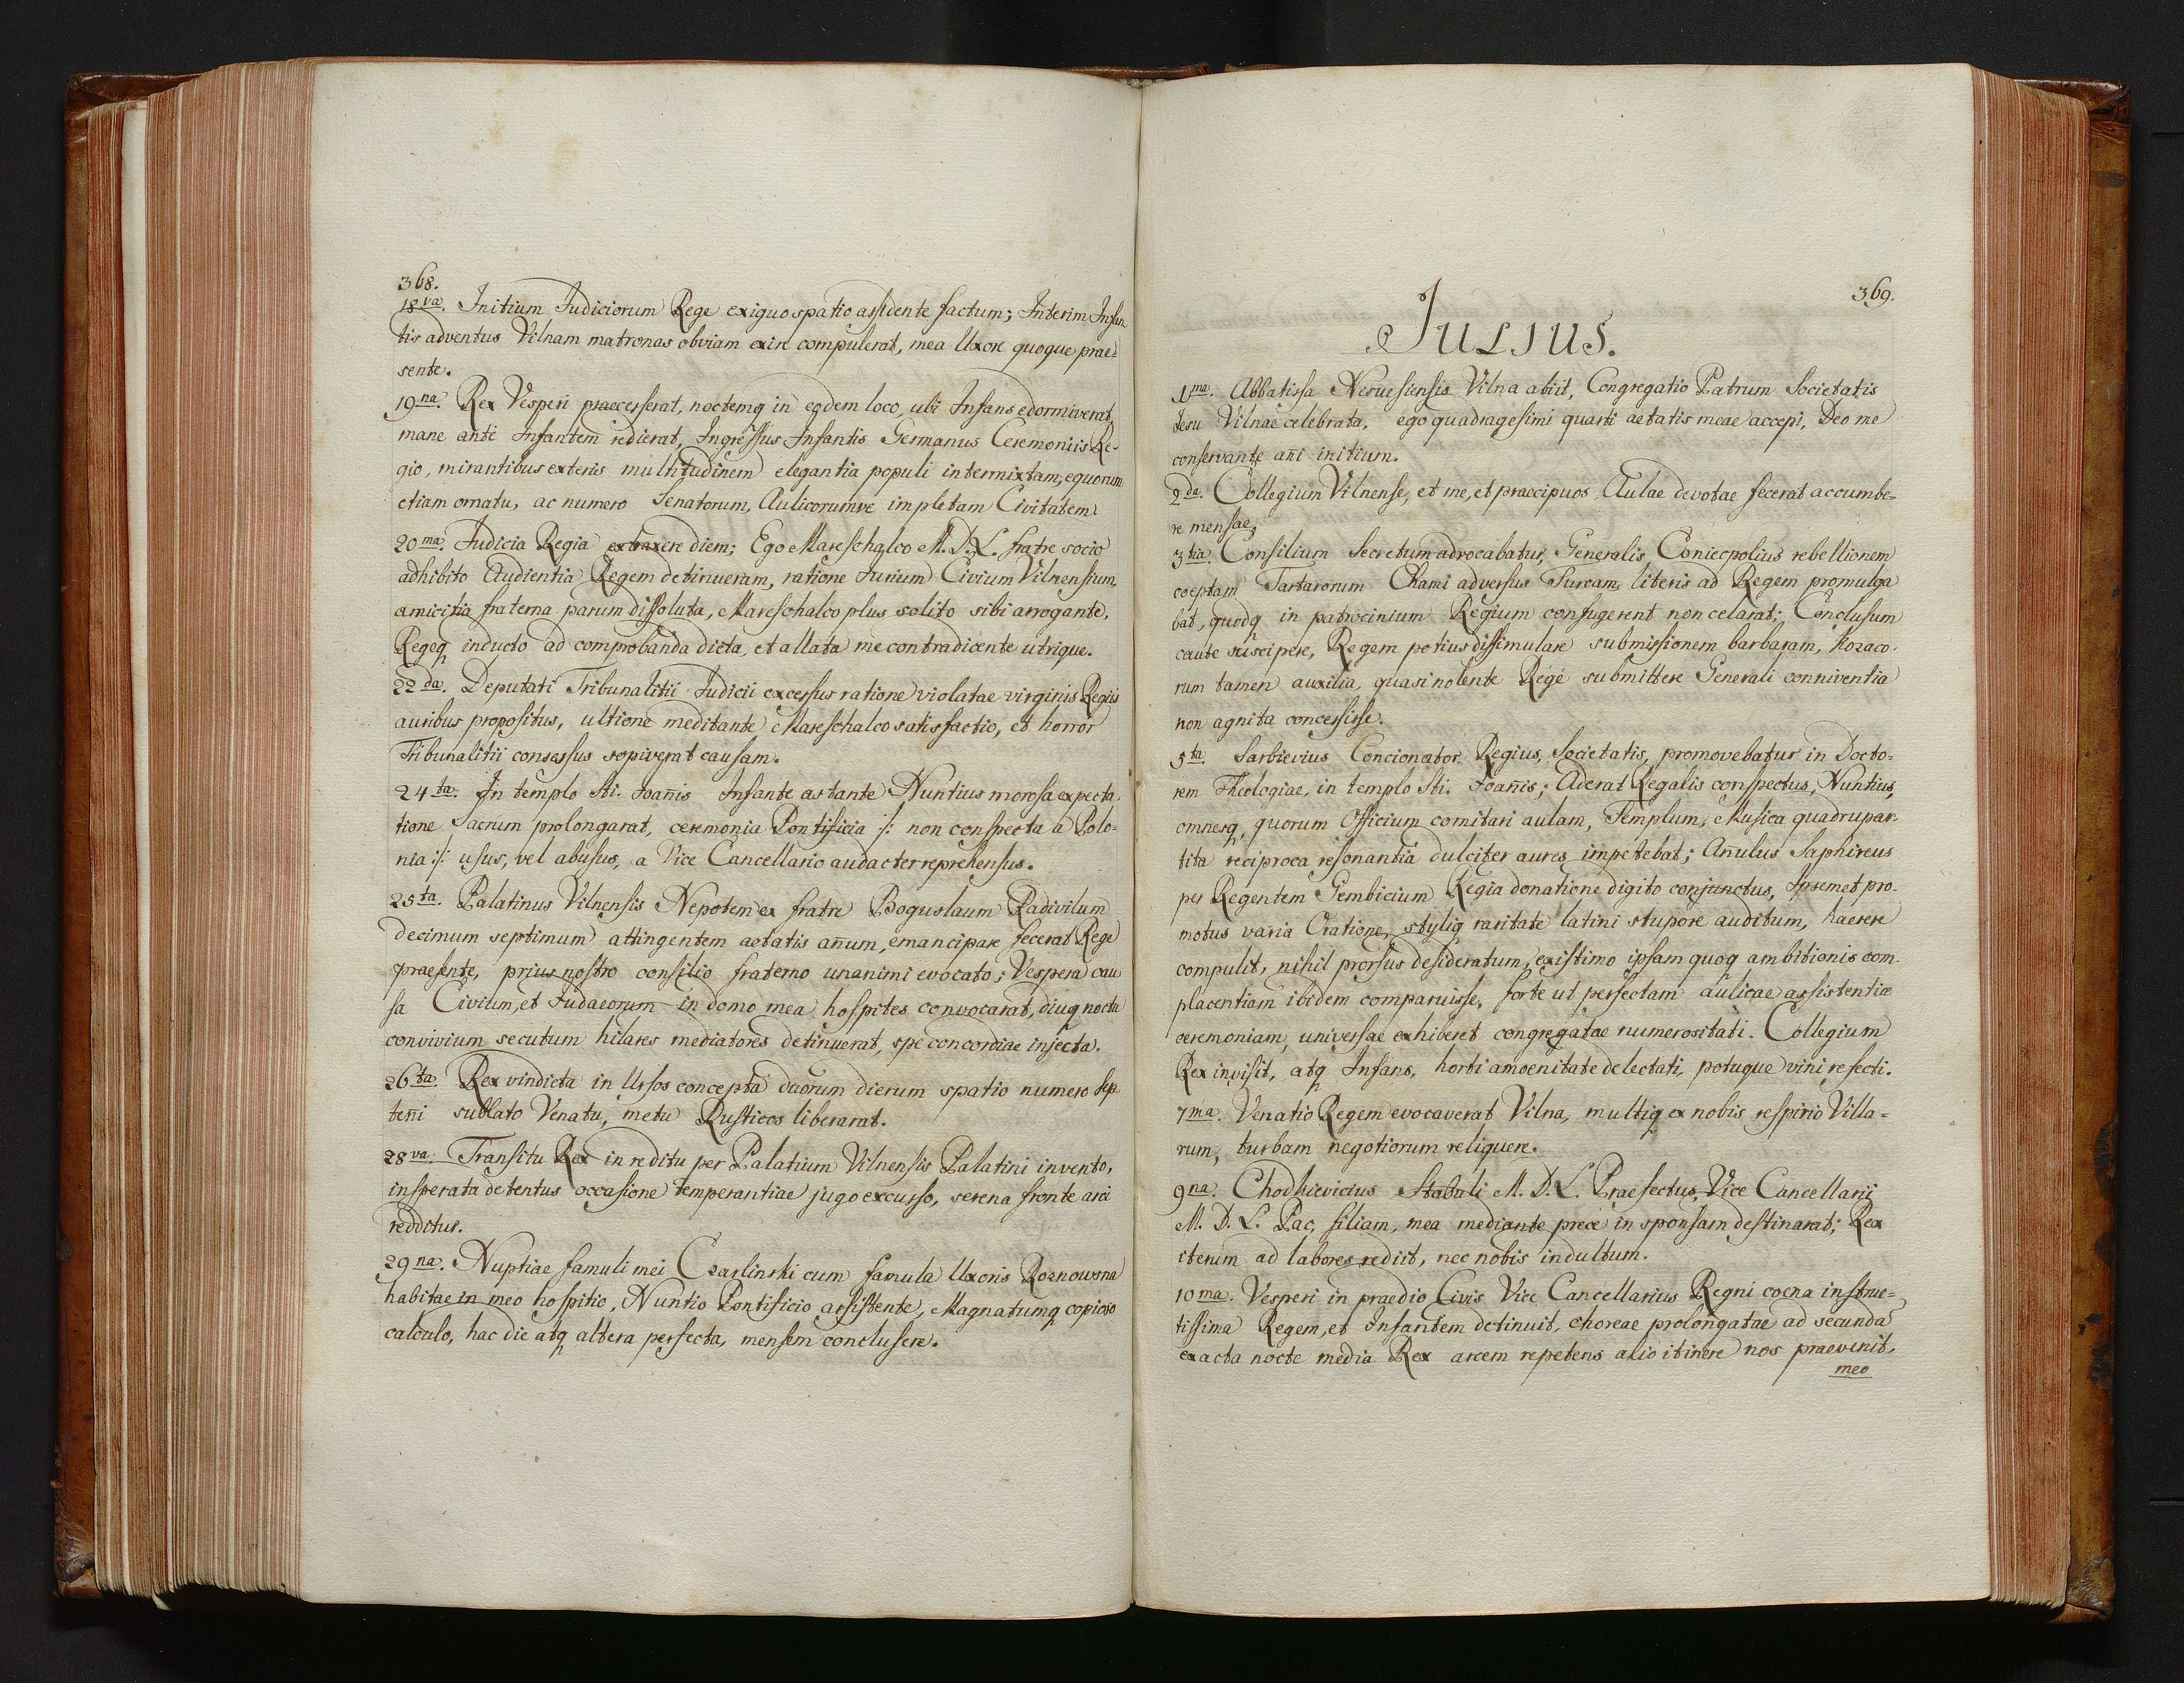 368.
18va. Initium Judiciorum Rege exiguo spatio assidente factum; Interim Infan
tis adventus Vilnam matronas obviam exire compulerat, mea Uxore quoque prae-
sente.
19na. Rex Vesperi praecesserat, noctemq in eodem loco, ubi Infans edormiverat,
mane ante Infantem redierat, Ingressus Infantis Germanus Ceremoniis Re-
gio, mirantibus exteris multitudinem elegantia populi intermixtam, equorum
etiam ornatu, ac numero Senatorum, Aulicorumve impletam Civitatem.
20ma. Judicia Regia extraxere diem; Ego Mareschalco M. D. L. fratre socio
adhibito Audientia Regem detinueram, ratione Jurium Civium Vilnensium,
amicitia fraterna parum dissoluta, Mareschalco plus solito sibi arrogante,
Regeq inducto ad comprobanda dicta, et allata me contradicente utrique.
22da. Deputati Tribunalitii Judicii excessus ratione violatae virginis Regiis
auribus propositus, ultione meditante Mareschalco satisfactio, et horror
Tribunalitii consessus sopiverat causam.
24ta. In templo Sti. Joañis Infante astante Nuntius morosa expecta
tione Sacrum prolongarat, ceremonia Pontificia :/: non conspecta a Polo-
nia :/: usus, vel abusus, a Vice Cancellario audacter reprehensus.
25ta. Palatinus Vilnensis Nepotem ex fratre Boguslaum Radivilum
decimum septimum attingentem aetatis añum, emancipare fecerat Rege
praesente, prius nostro consilio fraterno unanimi evocato; Vespera cau
sa Civium, et Judaeorum in domo mea hospites convocarat, diuq nocta
convivium secutum hilares mediatores detinuerat, spe concordiae injecta.
26ta. Rex vindicta in Ursos concepta duorum dierum spatio numero sep
teñi sublato Venatu, metu Rusticos liberarat.
28va. Transitu Rex in reditu per Palatium Vilnensis Palatini invento,
insperata detentus occasione temperantiae jugo excusso, serena fronte arci
redditus.
29na. Nuptiae famuli mei Czarlinski cum famula Uxoris Roznowna
habitae in meo hospitio, Nuntio Pontificio assistente, Magnatumq copioso
calculo, hac die atq altera perfecta, mensem conclusere.
369.
JULIUS.
1ma. Abbatissa Nesvesiensis Vilna abiit, Congregatio Patrum Societatis
Jesu Vilnae celebrata, ego quadragesimi quarti aetatis meae accepi, Deo me
conservante añi initium.
2da. Collegium Vilnense, et me, et praecipuos Aulae devotae fecerat accumbe-
re mensae,
3tia. Consilium Secretum advocabatur, Generalis Coniecpolius rebellionem
coeptam Tartarorum Chami adversus Turcam, literis ad Regem promulga
bat, quodq in patrocinium Regium confugerent non celarat; Conclusum
caute suscipere, Regem potius dissimulare submissionem barbaram, Kozaco-
rum tamen auxilia, quasi nolente Rege submittere Generali conniventia
non agnita concessisse.
5ta. Sarbievius Concionator Regius, Societatis, promovebatur in Docto-
rem Theologiae, in templo Sti. Joañis; Aderat Regalis conspectus, Nuntius,
omnesq, quorum Officium comitari aulam, Templum, Musica quadrupar-
tita reciproca resonantia dulciter aures impetebat; Añulus Saphireus
per Regentem Gembicium Regia donatione digito conjunctus, Ipsemet pro-
motus varia Oratione, styliq raritate latini stupore auditum, haerere
compulit, nihil prorsus desideratum, existimo ipsam quoq ambitionis com-
placentiam ibidem comparuisse, forte ut perfectam aulicae assistentiae
ceremoniam, universae exhiberet congregatae numerositati. Collegium
Rex invisit, atq Infans, horti amoenitate delectati, potuque vini refecti.
7ma. Venatio Regem evocaverat Vilna, multiq ex nobis respirio Villa-
rum, turbam negotiorum reliquere.
9na. Chodkievicius Stabuli M. D. L. Praefectus, Vice Cancellarii
M. D. L. Pac, filiam, mea mediante prece in sponsam destinarat; Rex
iterum ad labores rediit, nec nobis indultum.
10ma. Vesperi in praedio Civis Vice Cancellarius Regni coena instruc-
tissima Regem, et Infantem detinuit, choreae prolongatae ad secunda
exacta nocte media Rex arcem repetens alio itinere nos praevenit,
meo